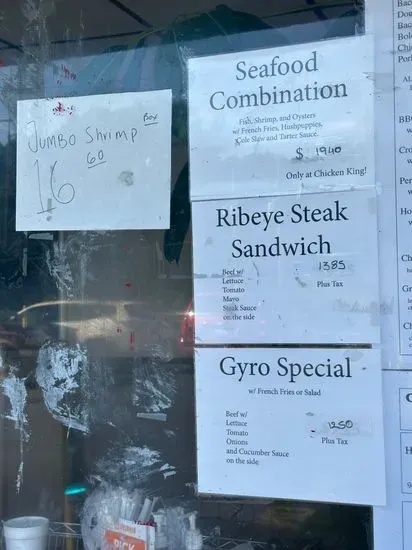 Jumbo Shrimp Box
16 60
Seafood
Combination
Fish, Shrimp, and Oysters
w/ French Fries, Hushpuppies,
Cole Slaw and Tarter Sauce.
$ 1940
Only at Chicken King!
Ribeye Steak
Sandwich
Beef w/
Lettuce
Tomato
Mayo
Steak Sauce
on the side
1385
Plus Tax
Gyro Special
w/ French Fries or Salad
Beef w/
Lettuce
Tomato
Onions
and Cucumber Sauce
on the side
1250
Plus Tax